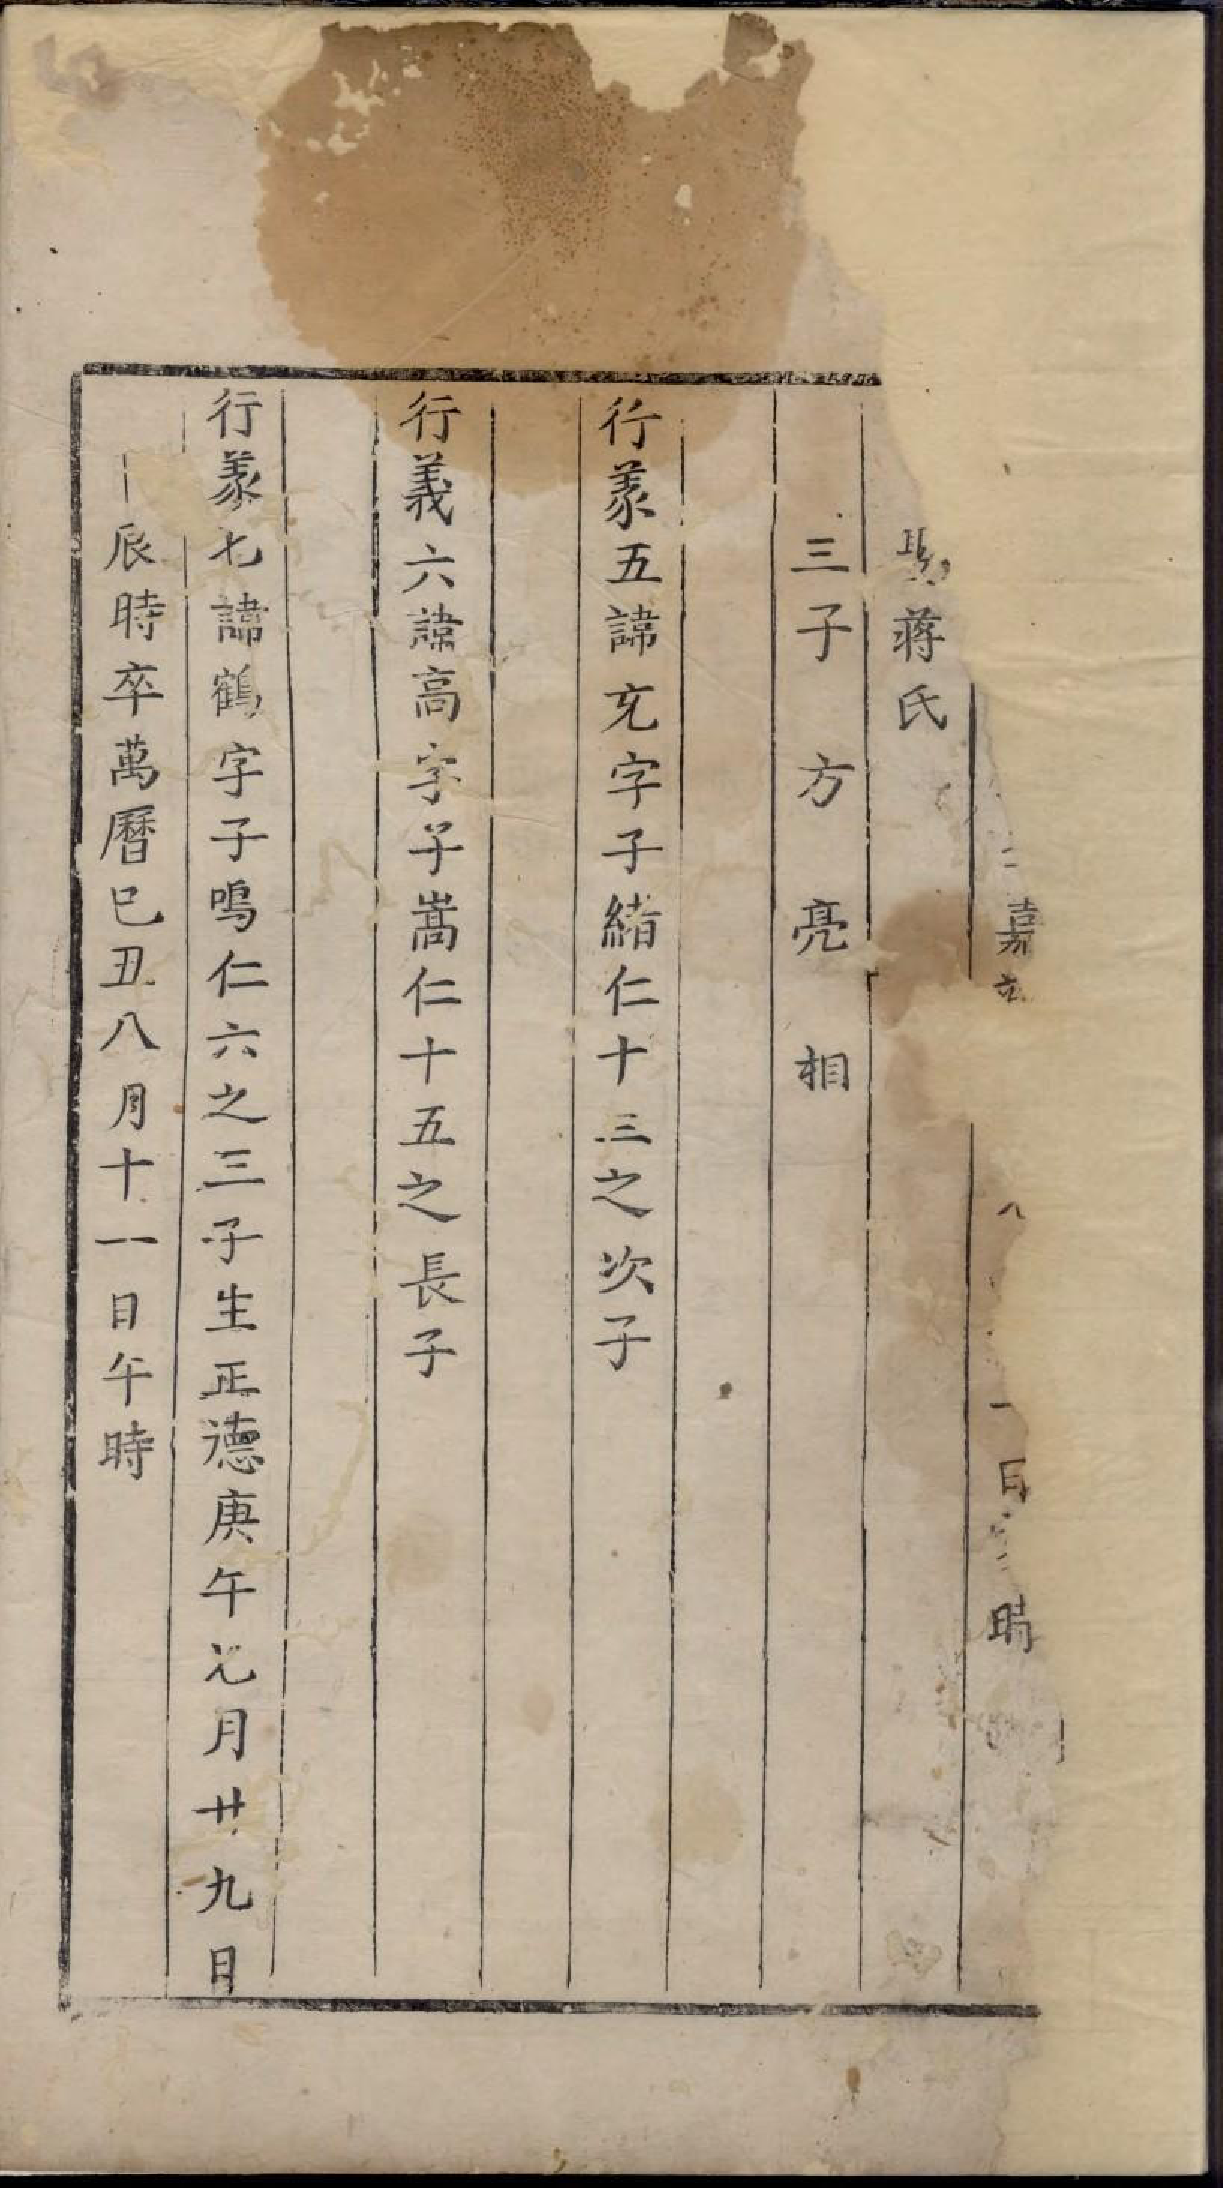 嘉靖八一日時
娶蔣氏
三子方亮相
行義五諱充字子緒仁十三之次子
行義六諱高字子嵩仁十五之長子
行義七諱鶴字子鳴仁六之三子生正德庚午七月廿九日
辰時卒萬曆己丑八月十一日午時